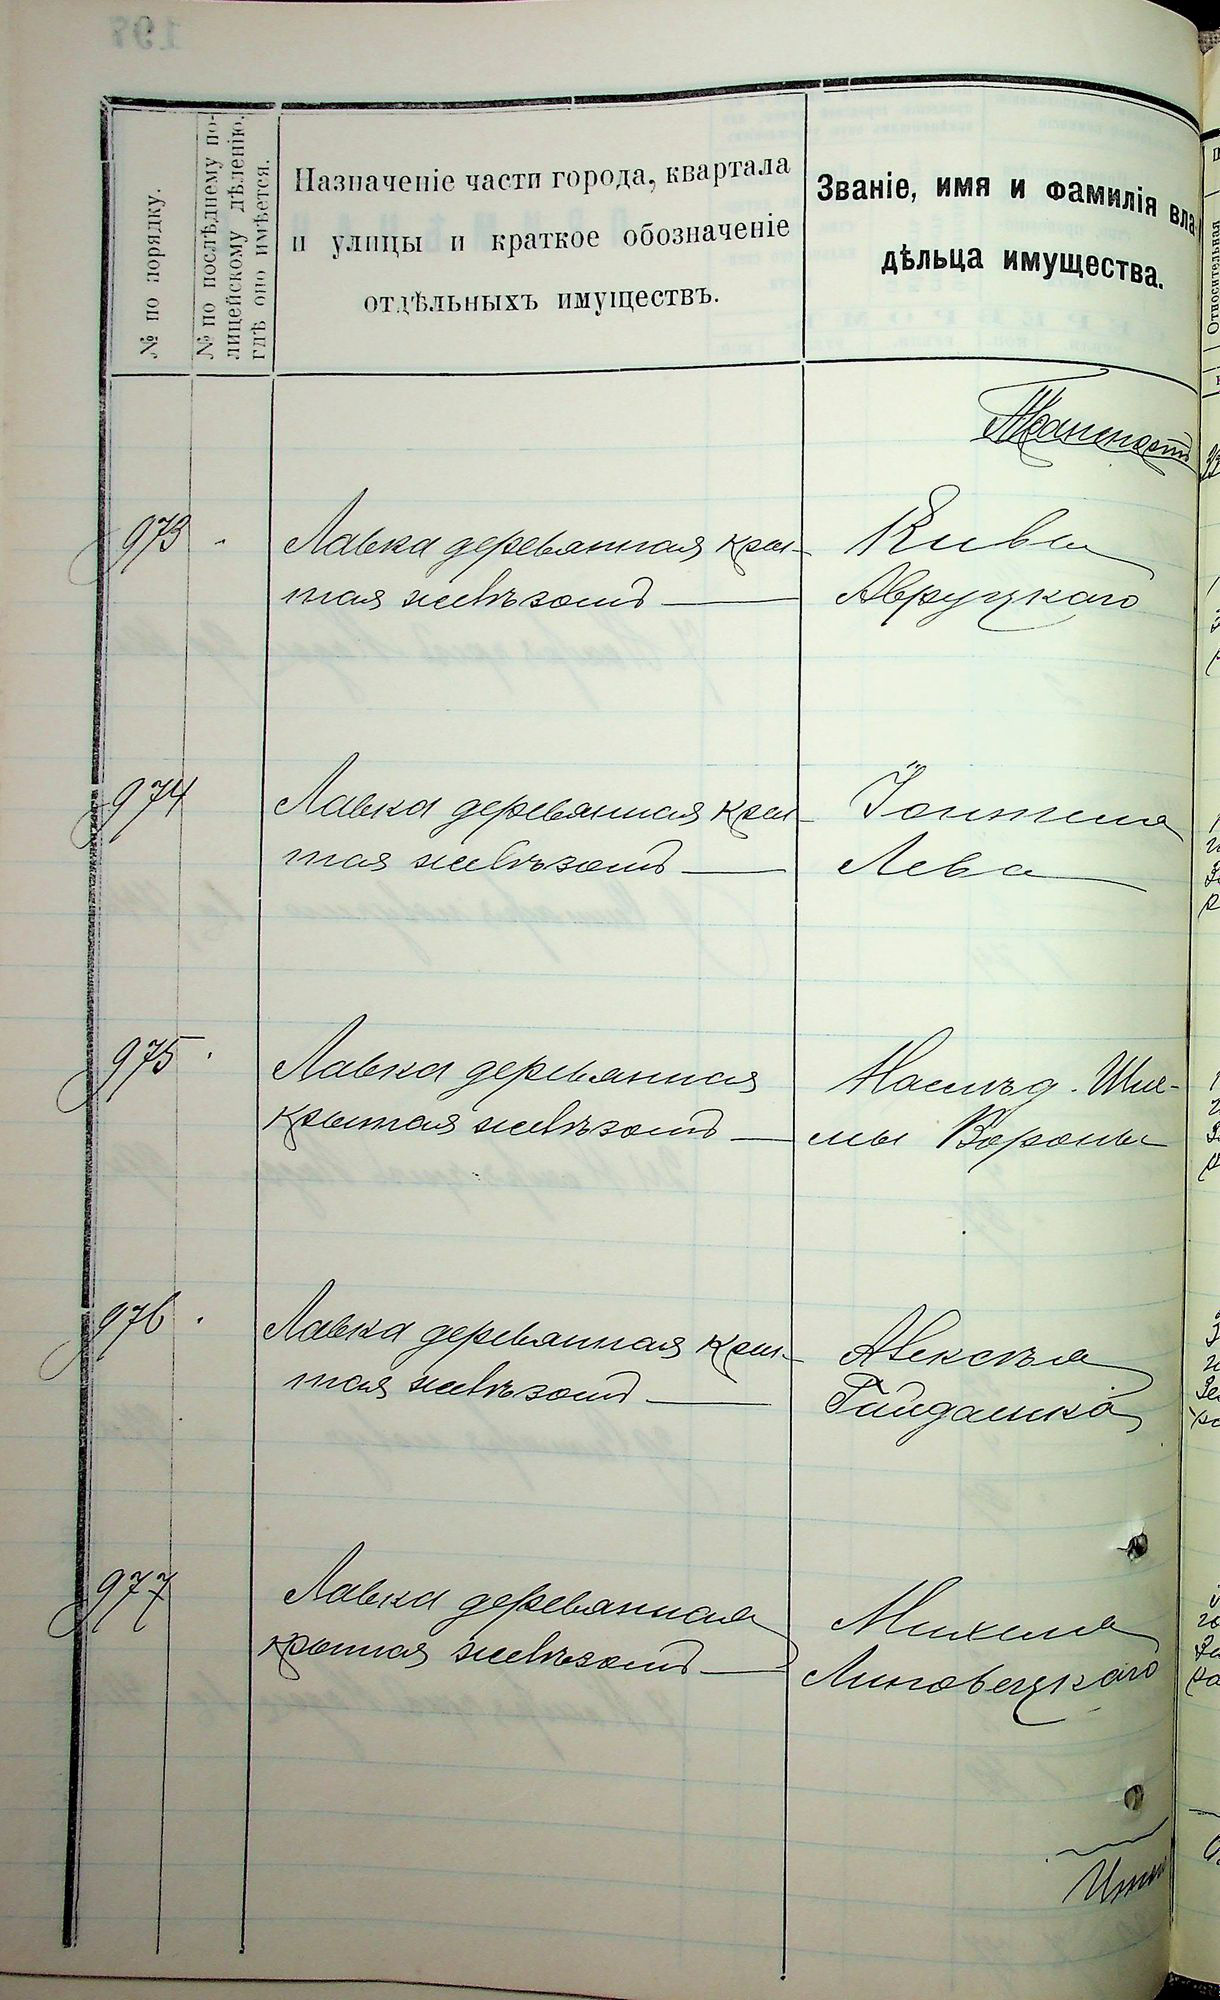 № по порядку.
№ по послѣднему по-
лицейскому дѣленію,
гдѣ оно имѣется.
Назначеніе части города, квартала
и улицы и краткое обозначеніе
отдѣльныхъ имуществъ.
Званіе, имя и фамилія вла-
дѣльца имущества.
Транспортъ
973
Лавка деревянная кры-
тая желѣзомъ
Кивы
Авруцкаго
974
Лавка деревянная кры-
тая желѣзомъ
Лева
975
Лавка деревянная
крытая желѣзомъ
Наслѣд. Шле-
мы Вороны
976
Лавка деревянная кры-
тая желѣзомъ
Алексѣя
977
Лавка деревянная
крытая желѣзомъ
Михеля
Липовецкаго